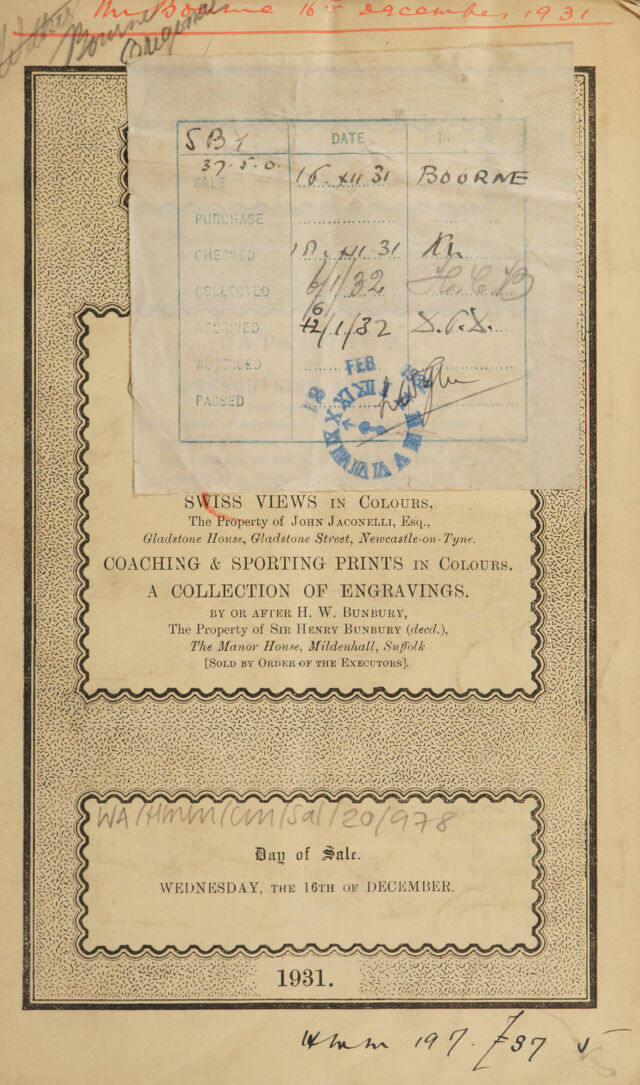 Mr Bourne 16th December 1931
Sotheby
Bourne
Original
SBY DATE
37.5.0.
SALE 16.XII 31 BOURNE
PURCHASE
CHECKED 18.XII.31
COLLECTED 6/1/32 H.C.B
RECEIVED 6/1/32
ACCESSED
PASSED
FEB
SWISS VIEWS IN COLOURS,
The Property of JOHN JACONELLI, Esq.,
Gladstone House, Gladstone Street, Newcastle-on-Tyne.
COACHING & SPORTING PRINTS IN COLOURS.
A COLLECTION OF ENGRAVINGS.
BY OR AFTER H. W. BUNBURY,
The Property of SIR HENRY BUNBURY (decd.),
The Manor House, Mildenhall, Suffolk
[SOLD BY ORDER OF THE EXECUTORS].
WA/HMM/CM/Sal/20/978
Day of Sale.
WEDNESDAY, THE 16TH OF DECEMBER.
1931.
HMM 197. £37